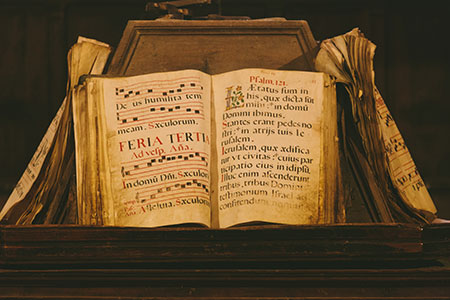 De us humilita tem
meam, Sæculorum.
FERIA TERTI
Ad vesp. Aña,
In domū Dñi, Sæculorum
Psalm. 121.
Lætatus sum in
his, quæ dicta sūt
mihi: * in domū
Domini ibimus.
Stantes erant pedes no
stri: * in atrijs tuis Ie
rusalem.
Ierusalem, quæ ædifica
tur vt civitas: * cuius par
ticipatio eius in idipsū.
Illuc enim ascenderunt
tribus, tribus Domini